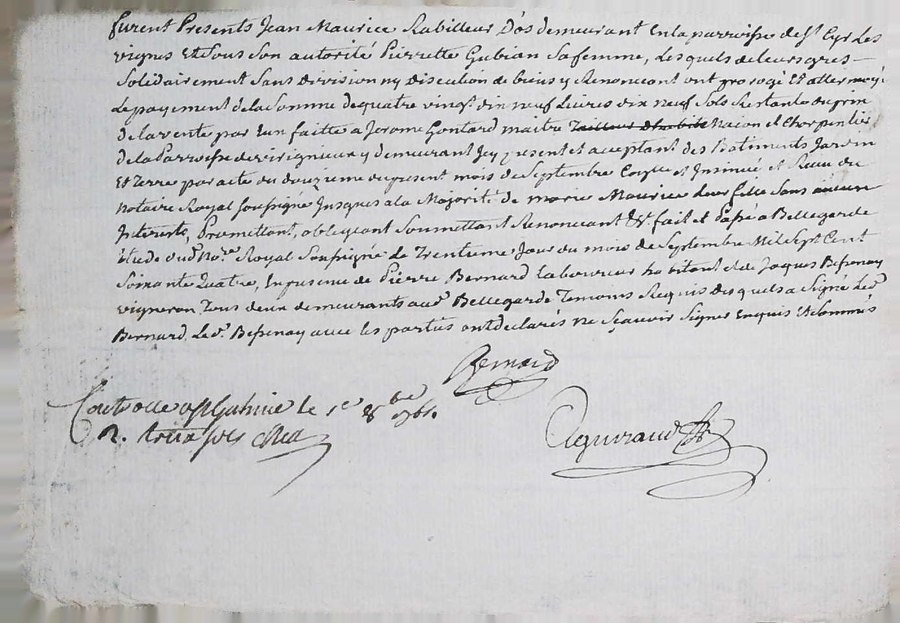 furent Presents Jean Maurice Rabilleur D'os demeurant En la parroisse de St Cyr Les
vignes Et Sous Son autorité Pierrette Gubian Sa femme, Lesquels de leurs gres
Solidairement Sans Division ny Discution de biens y Renoncant ont prorogé Et attermoyé
Le payement de la Somme de quatre vingt dix neuf Livres dix neuf Sols Restante du prix
de la vente par Eux faitte a Jerome Gontard maitre Tailleur d'habits Macon et Charpentier
de la Parroisse de virignieux y demeurant Icy present et acceptant des Batiments Jardin
Et Terre par acte du douzieme du present mois de Septembre Conlle et Insinué et Receu du
notaire Royal Soussigné Jusques a la Majorité de marie Maurice leur fille Sans aucun
Interests, Promettant, obligeant Soumettant Renoncant &c fait et Passé a Bellegarde
Etude dudt Nore Royal Soussigné le Trentieme Jour du mois de Septembre Mil Sept Cent
Soixante Quatre, En presence de Pierre Bernard Laboureur habitant et de Jaques Bessenay
vigneron Tous deux demeurants audt Bellegarde Temoins Requis desquels a Signé Ledt
Bernard, Ledt Bessenay avec les parties ont declarés ne Sçavoir Signer Enquis Et Sommés
Bernard
Controllé a St Galmier le 1e 8bre 1764
R. treize sols